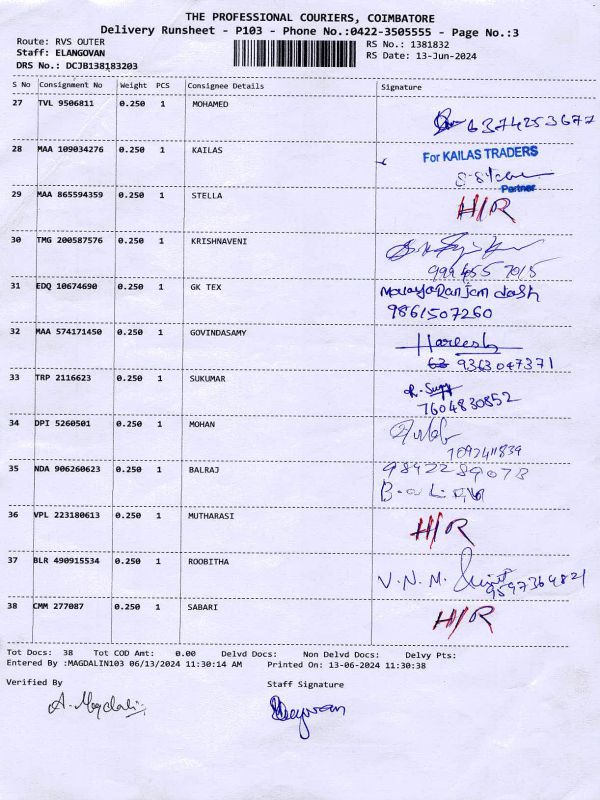 THE PROFESSIONAL COURIERS, COIMBATORE
Delivery Runsheet - P103 - Phone No.:0422-3505555 - Page No.:3
Route: RVS OUTER
RS No.: 1381832
Staff: ELANGOVAN
RS Date: 13-Jun-2024
DRS No.: DCJB138183203
S No Consignment No Weight PCS Consignee Details Signature
27 TVL 9506811 0.250 1 MOHAMED
6374253677
28 MAA 109034276 0.250 1 KAILAS
For KAILAS TRADERS
Partner
29 MAA 865594359 0.250 1 STELLA
H/R
30 TMG 200587576 0.250 1 KRISHNAVENI
999455 7015
31 EDQ 10674690 0.250 1 GK TEX
dash
9861507260
32 MAA 574171450 0.250 1 GOVINDASAMY
Hareesh
9363047371
33 TRP 2116623 0.250 1 SUKUMAR
7604830852
34 DPI 5260501 0.250 1 MOHAN
35 NDA 906260623 0.250 1 BALRAJ
9842289078
36 VPL 223180613 0.250 1 MUTHARASI
H/R
37 BLR 490915534 0.250 1 ROOBITHA
V.N.M.
9597364821
38 CMM 277087 0.250 1 SABARI
H/R
Tot Docs: 38 Tot COD Amt: 0.00 Delvd Docs: Non Delvd Docs: Delvy Pts:
Entered By :MAGDALIN103 06/13/2024 11:30:14 AM Printed On: 13-06-2024 11:30:38
Verified By
Staff Signature